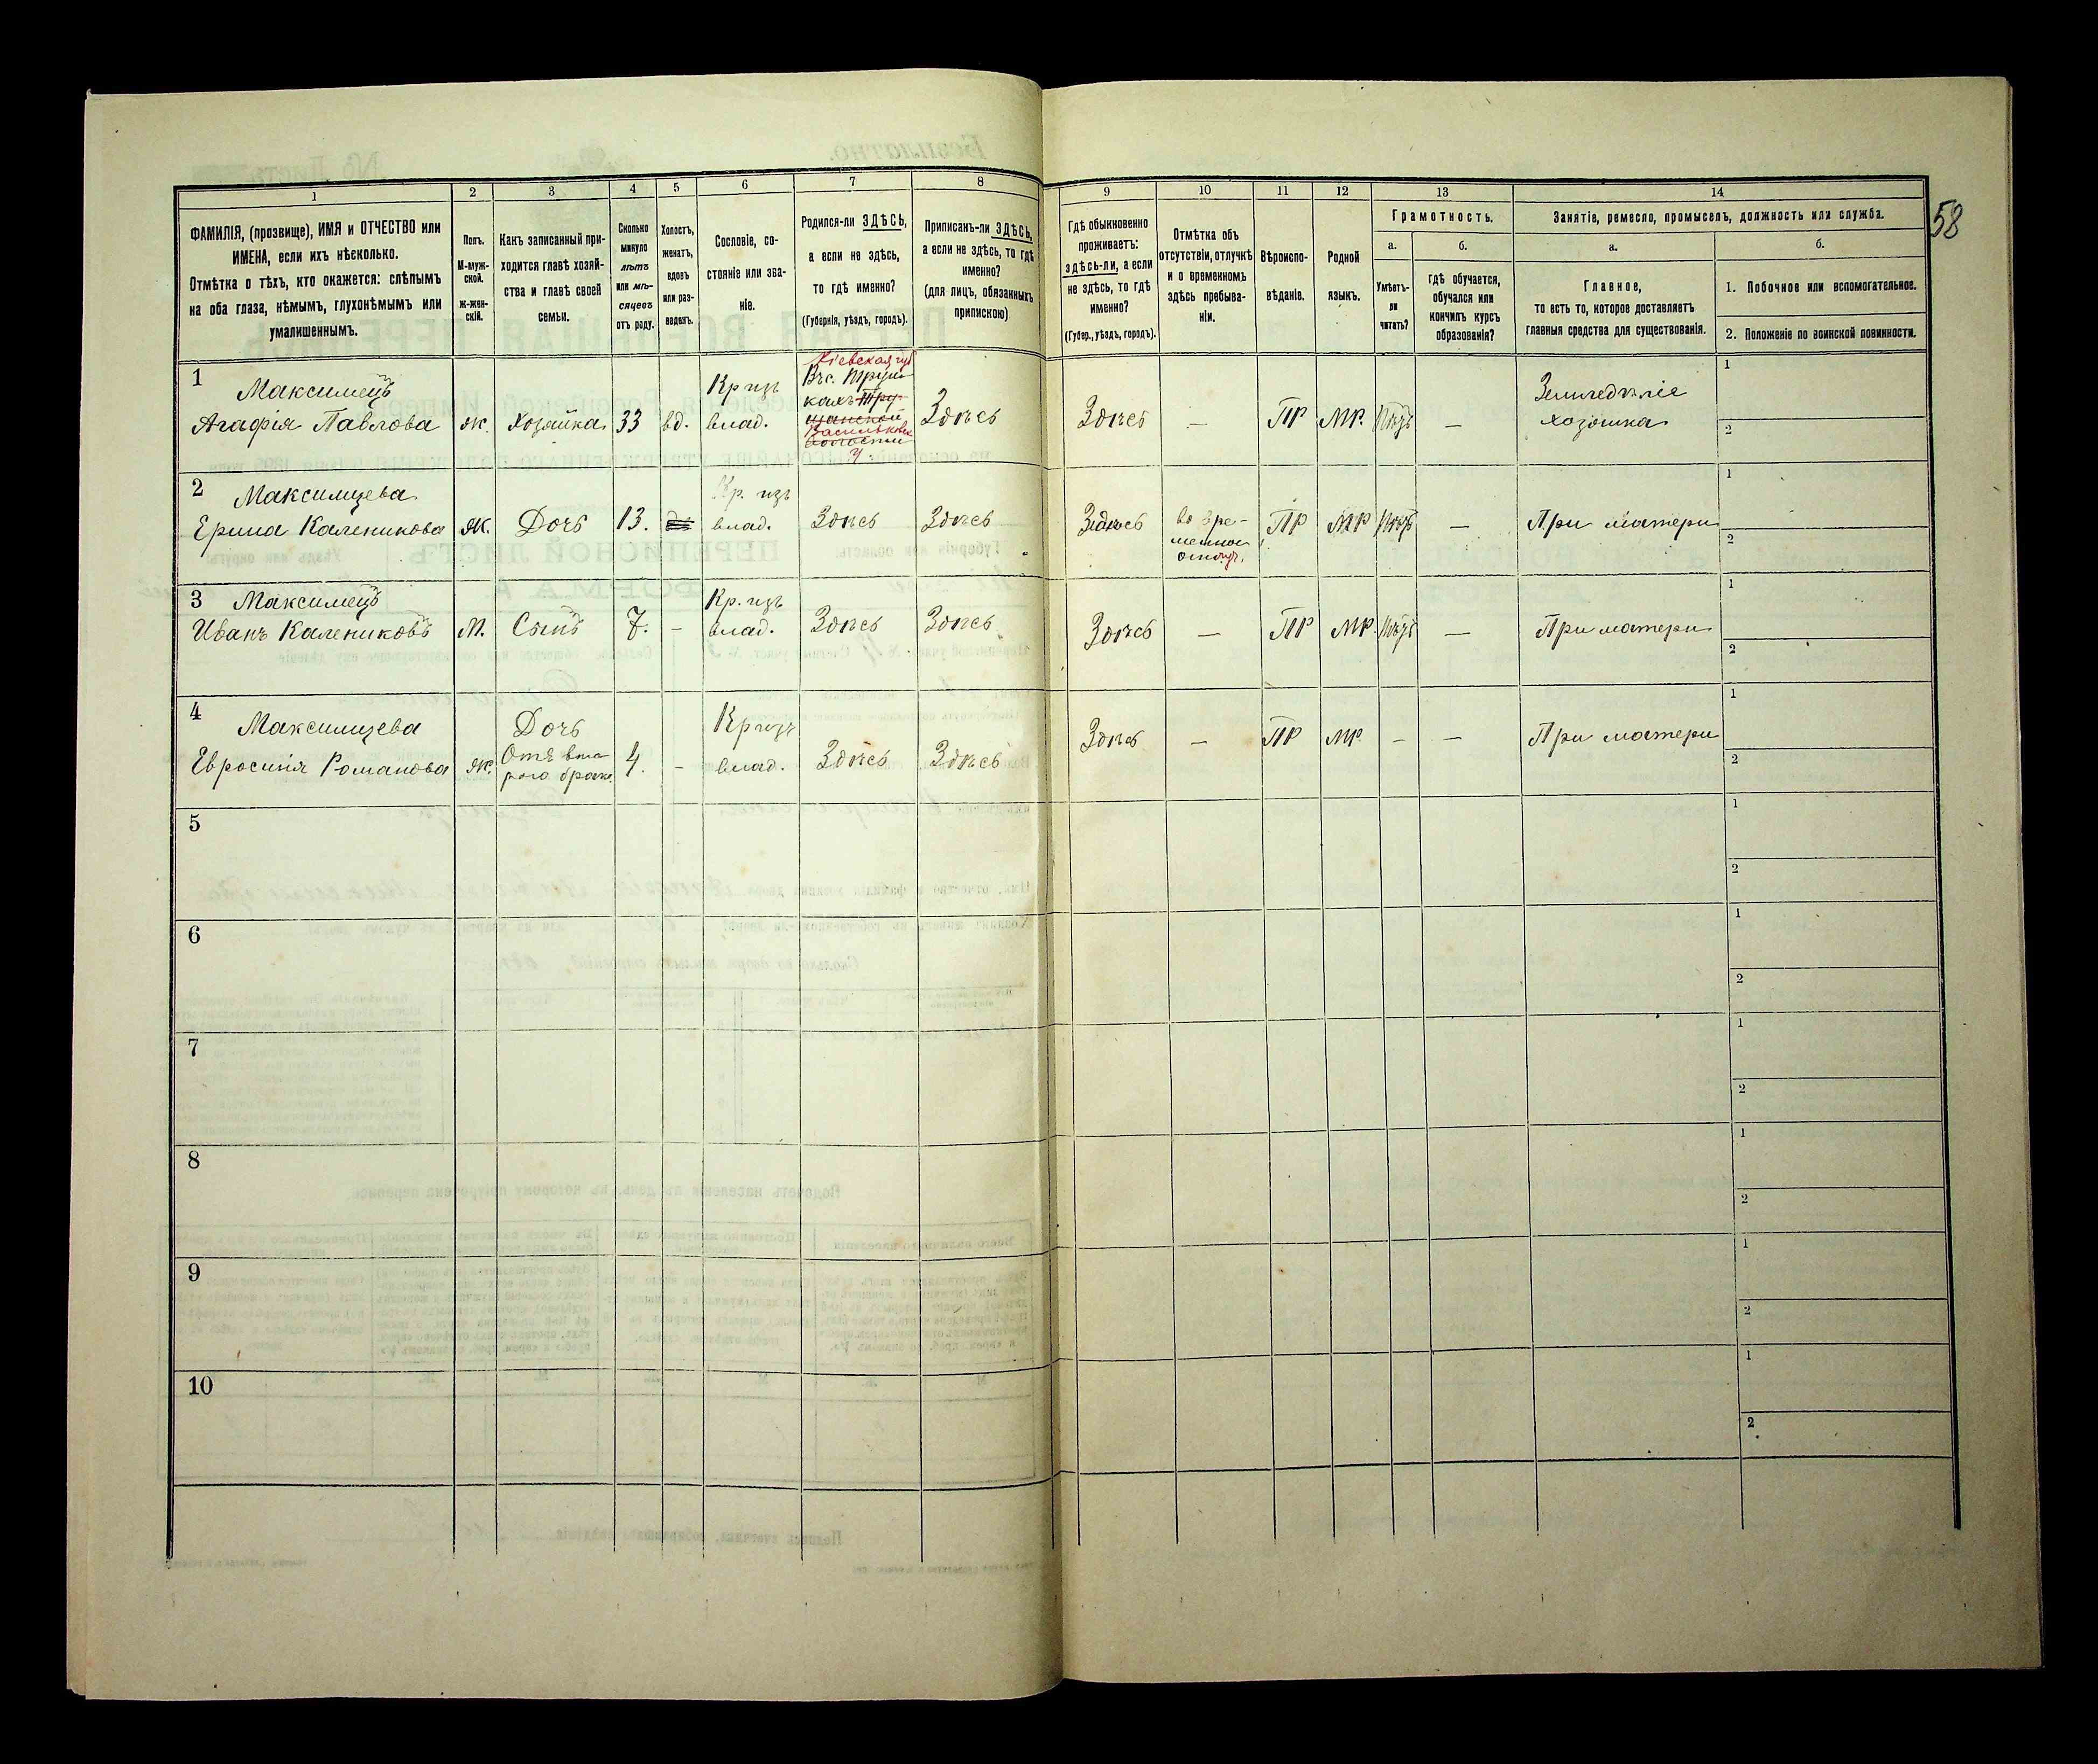 58
1 2 3 4 5 6 7 8 9 10 11 12 13 14
ФАМИЛІЯ, (прозвище), ИМЯ и ОТЧЕСТВО или
ИМЕНА, если ихъ нѣсколько.
Отмѣтка о тѣхъ, кто окажется: слѣпымъ
на оба глаза, нѣмымъ, глухонѣмымъ или
умалишеннымъ.
Полъ.
М-муж-
ской.
ж-жен-
скій.
Какъ записанный при-
ходится главѣ хозяй-
ства и главѣ своей
семьи.
Сколько
минуло
лѣтъ
или мѣ-
сяцевъ
отъ роду.
Холостъ,
женатъ,
вдовъ
или раз-
веденъ.
Сословіе, со-
стояніе или зва-
ніе.
Родился-ли ЗДѢСЬ,
а если не здѣсь,
то гдѣ именно?
(Губернія, уѣздъ, городъ).
Приписанъ-ли ЗДѢСЬ,
а если не здѣсь, то гдѣ
именно?
(для лицъ, обязанныхъ
припискою)
Гдѣ обыкновенно
проживаетъ:
здѣсь-ли, а если
не здѣсь, то гдѣ
именно?
(Губер., уѣздъ, городъ).
Отмѣтка объ
отсутствіи, отлучкѣ
и о временномъ
здѣсь пребыва-
ніи.
Вѣроиспо-
вѣданіе.
Родной
языкъ.
Грамотность.
а.
Умѣетъ-
ли
читать?
б.
гдѣ обучается,
обучался или
кончилъ курсъ
образованія?
Занятіе, ремесло, промыселъ, должность или служба.
а.
Главное,
то есть то, которое доставляетъ
главныя средства для существованія.
б.
1. Побочное или вспомогательное.
2. Положеніе по воинской повинности.
1
Максимецъ
Агафія Павлова
ж.
Хозяйка
33
вд.
Кр изъ
влад.
Кіевская губ
Въ с. Труш
кахъ Тру-
шанской
Васильковск
волости
у.
Здѣсь
Здѣсь
—
Пр
мр.
Нѣтъ
—
Земледѣліе
хозяйка
1
2
2
Максимцева
Ерина Каленикова
ж.
Дочь
13.
Кр. изъ
влад.
Здѣсь
Здѣсь
Здѣсь
во вре-
менной
отлуч.
Пр
мр
Нѣтъ
—
При матери
1
2
3
Максимецъ
Иванъ Калениковъ
М.
Сынъ
7.
—
Кр. изъ
влад.
Здѣсь
Здѣсь
Здѣсь
—
Пр
мр.
Нѣтъ
—
При матери
1
2
4
Максимцева
Евросинія Романова
ж.
Дочь
Отъ вто
рого брака.
4.
—
Кр изъ
влад.
Здѣсь
Здѣсь
Здѣсь
—
Пр
мр.
—
—
При матери
1
2
5
1
2
6
1
2
7
1
2
8
1
2
9
1
2
10
1
2